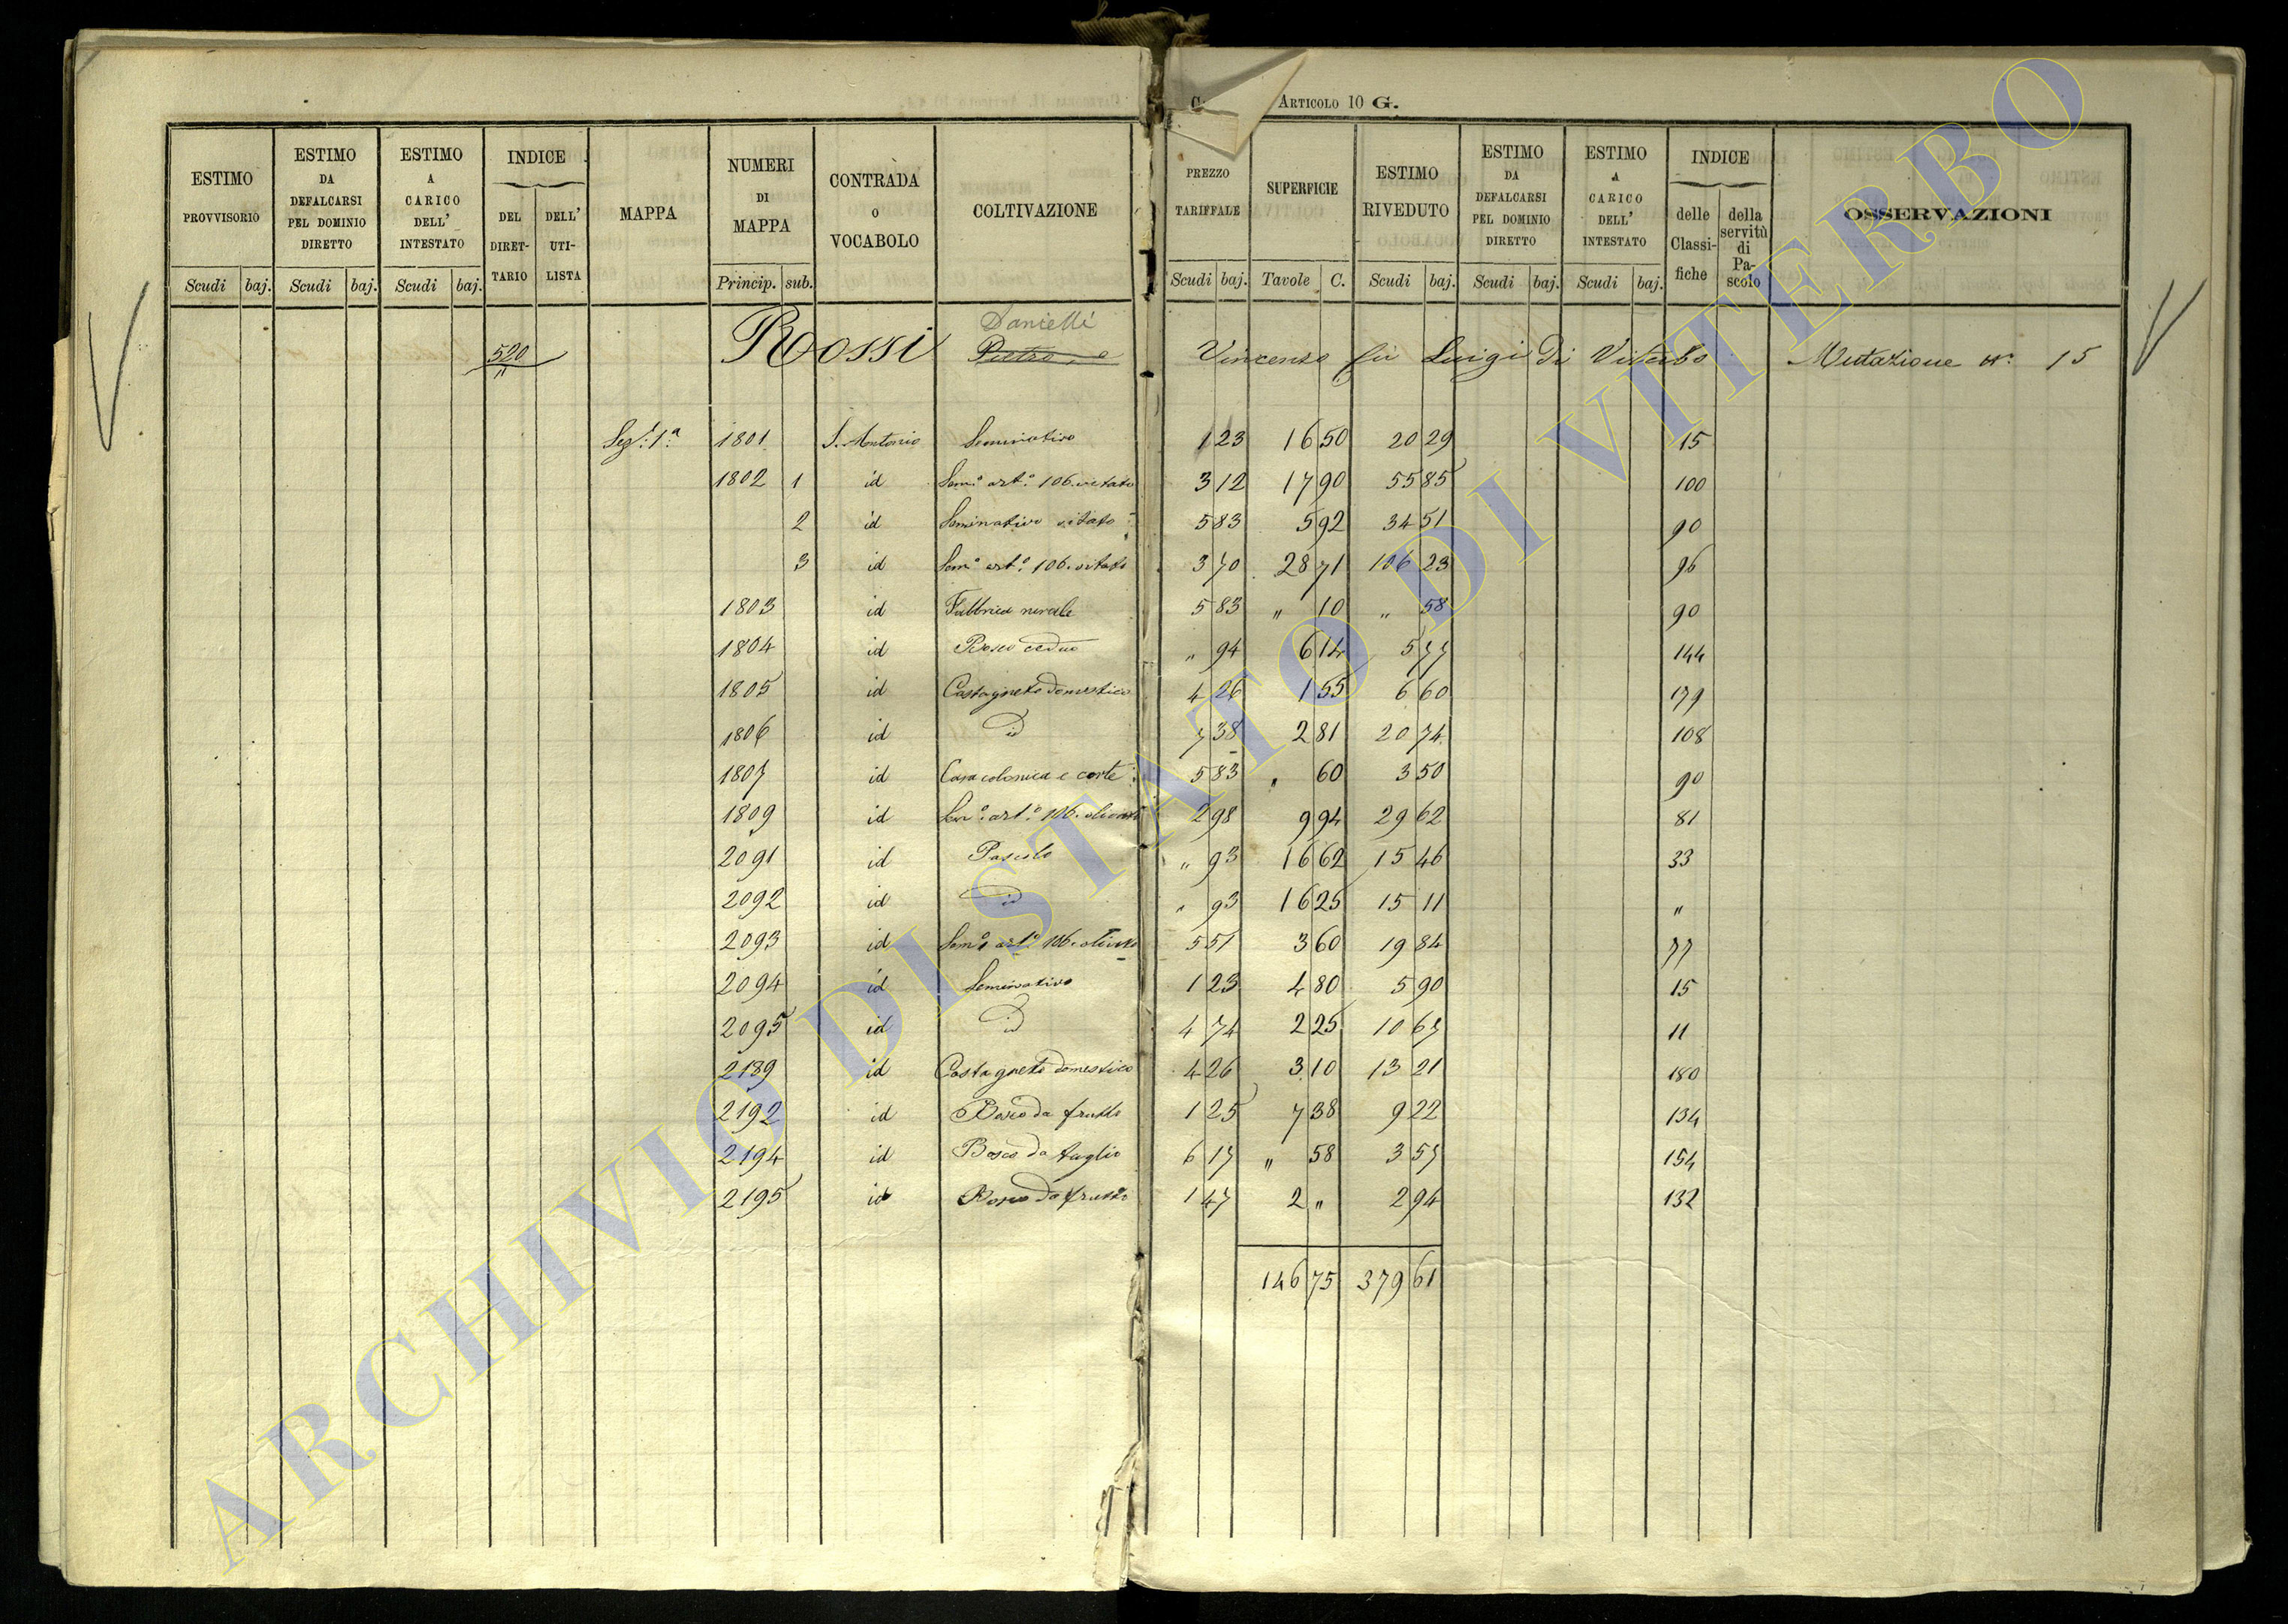 ARTICOLO 10 G.
ESTIMO PROVVISORIO Scudi baj.
ESTIMO DA DEFALCARSI PEL DOMINIO DIRETTO Scudi baj.
ESTIMO A CARICO DELL' INTESTATO Scudi baj.
INDICE DEL DIRET- TARIO DELL' UTI- LISTA
MAPPA
NUMERI DI MAPPA Princip. sub.
CONTRADA O VOCABOLO
COLTIVAZIONE
PREZZO TARIFFALE Scudi baj.
SUPERFICIE Tavole C.
ESTIMO RIVEDUTO Scudi baj.
ESTIMO DA DEFALCARSI PEL DOMINIO DIRETTO Scudi baj.
ESTIMO A CARICO DELL' INTESTATO Scudi baj.
INDICE delle Classi- fiche della servitù di Pa- scolo
OSSERVAZIONI
Danielli
520 Rossi Pietro, e Vincenzo fu Luigi di Viterbo Mutazione n° 15
Sez. 1ª 1801 S. Antonio Seminativo 1 23 16 50 20 29 15
1802 1 id Sem.° art.° 106. vitato 3 12 17 90 55 85 100
2 id Seminativo vitato 5 83 5 92 34 51 90
3 id Sem.° art.° 106. vitato 3 70 28 71 106 23 96
1803 id Fabbrica rurale 5 83 " 10 " 58 90
1804 id Bosco ceduo " 94 6 14 5 77 144
1805 id Castagneto domestico 4 26 1 55 6 60 179
1806 id id 7 38 2 81 20 74 108
1807 id Casa colonica e corte 5 83 " 60 3 50 90
1809 id Sem.° art.° 106. olivato 2 98 9 94 29 62 81
2091 id Pascolo " 93 16 62 15 46 33
2092 id id " 93 16 25 15 11 "
2093 id Sem.° art.° 106. olivato 5 51 3 60 19 84 77
2094 id Seminativo 1 23 4 80 5 90 15
2095 id id 4 74 2 25 10 67 11
2189 id Castagneto domestico 4 26 3 10 13 21 180
2192 id Bosco da frutto 1 25 7 38 9 22 134
2194 id Bosco da taglio 6 17 " 58 3 57 154
2195 id Bosco da frutto 1 47 2 " 2 94 132
146 75 379 61
ARCHIVIO DI STATO DI VITERBO